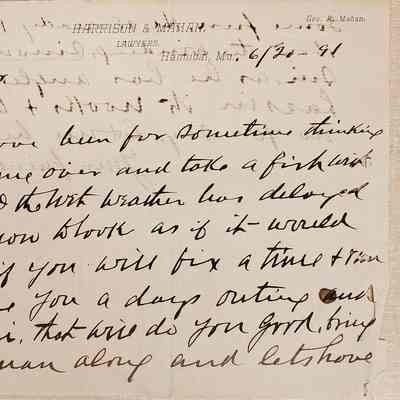 HARRISON & MAHAN,
Geo. A. Mahan.
LAWYERS.
Hannibal, Mo., 6/20-91
ove been for sometime thinking
me over and take a fish with
d the wet weather has delayed
now to look as if it would
if you will fix a time & I can
e you a days outing and
i, that will do you good, bring
man along and lets have